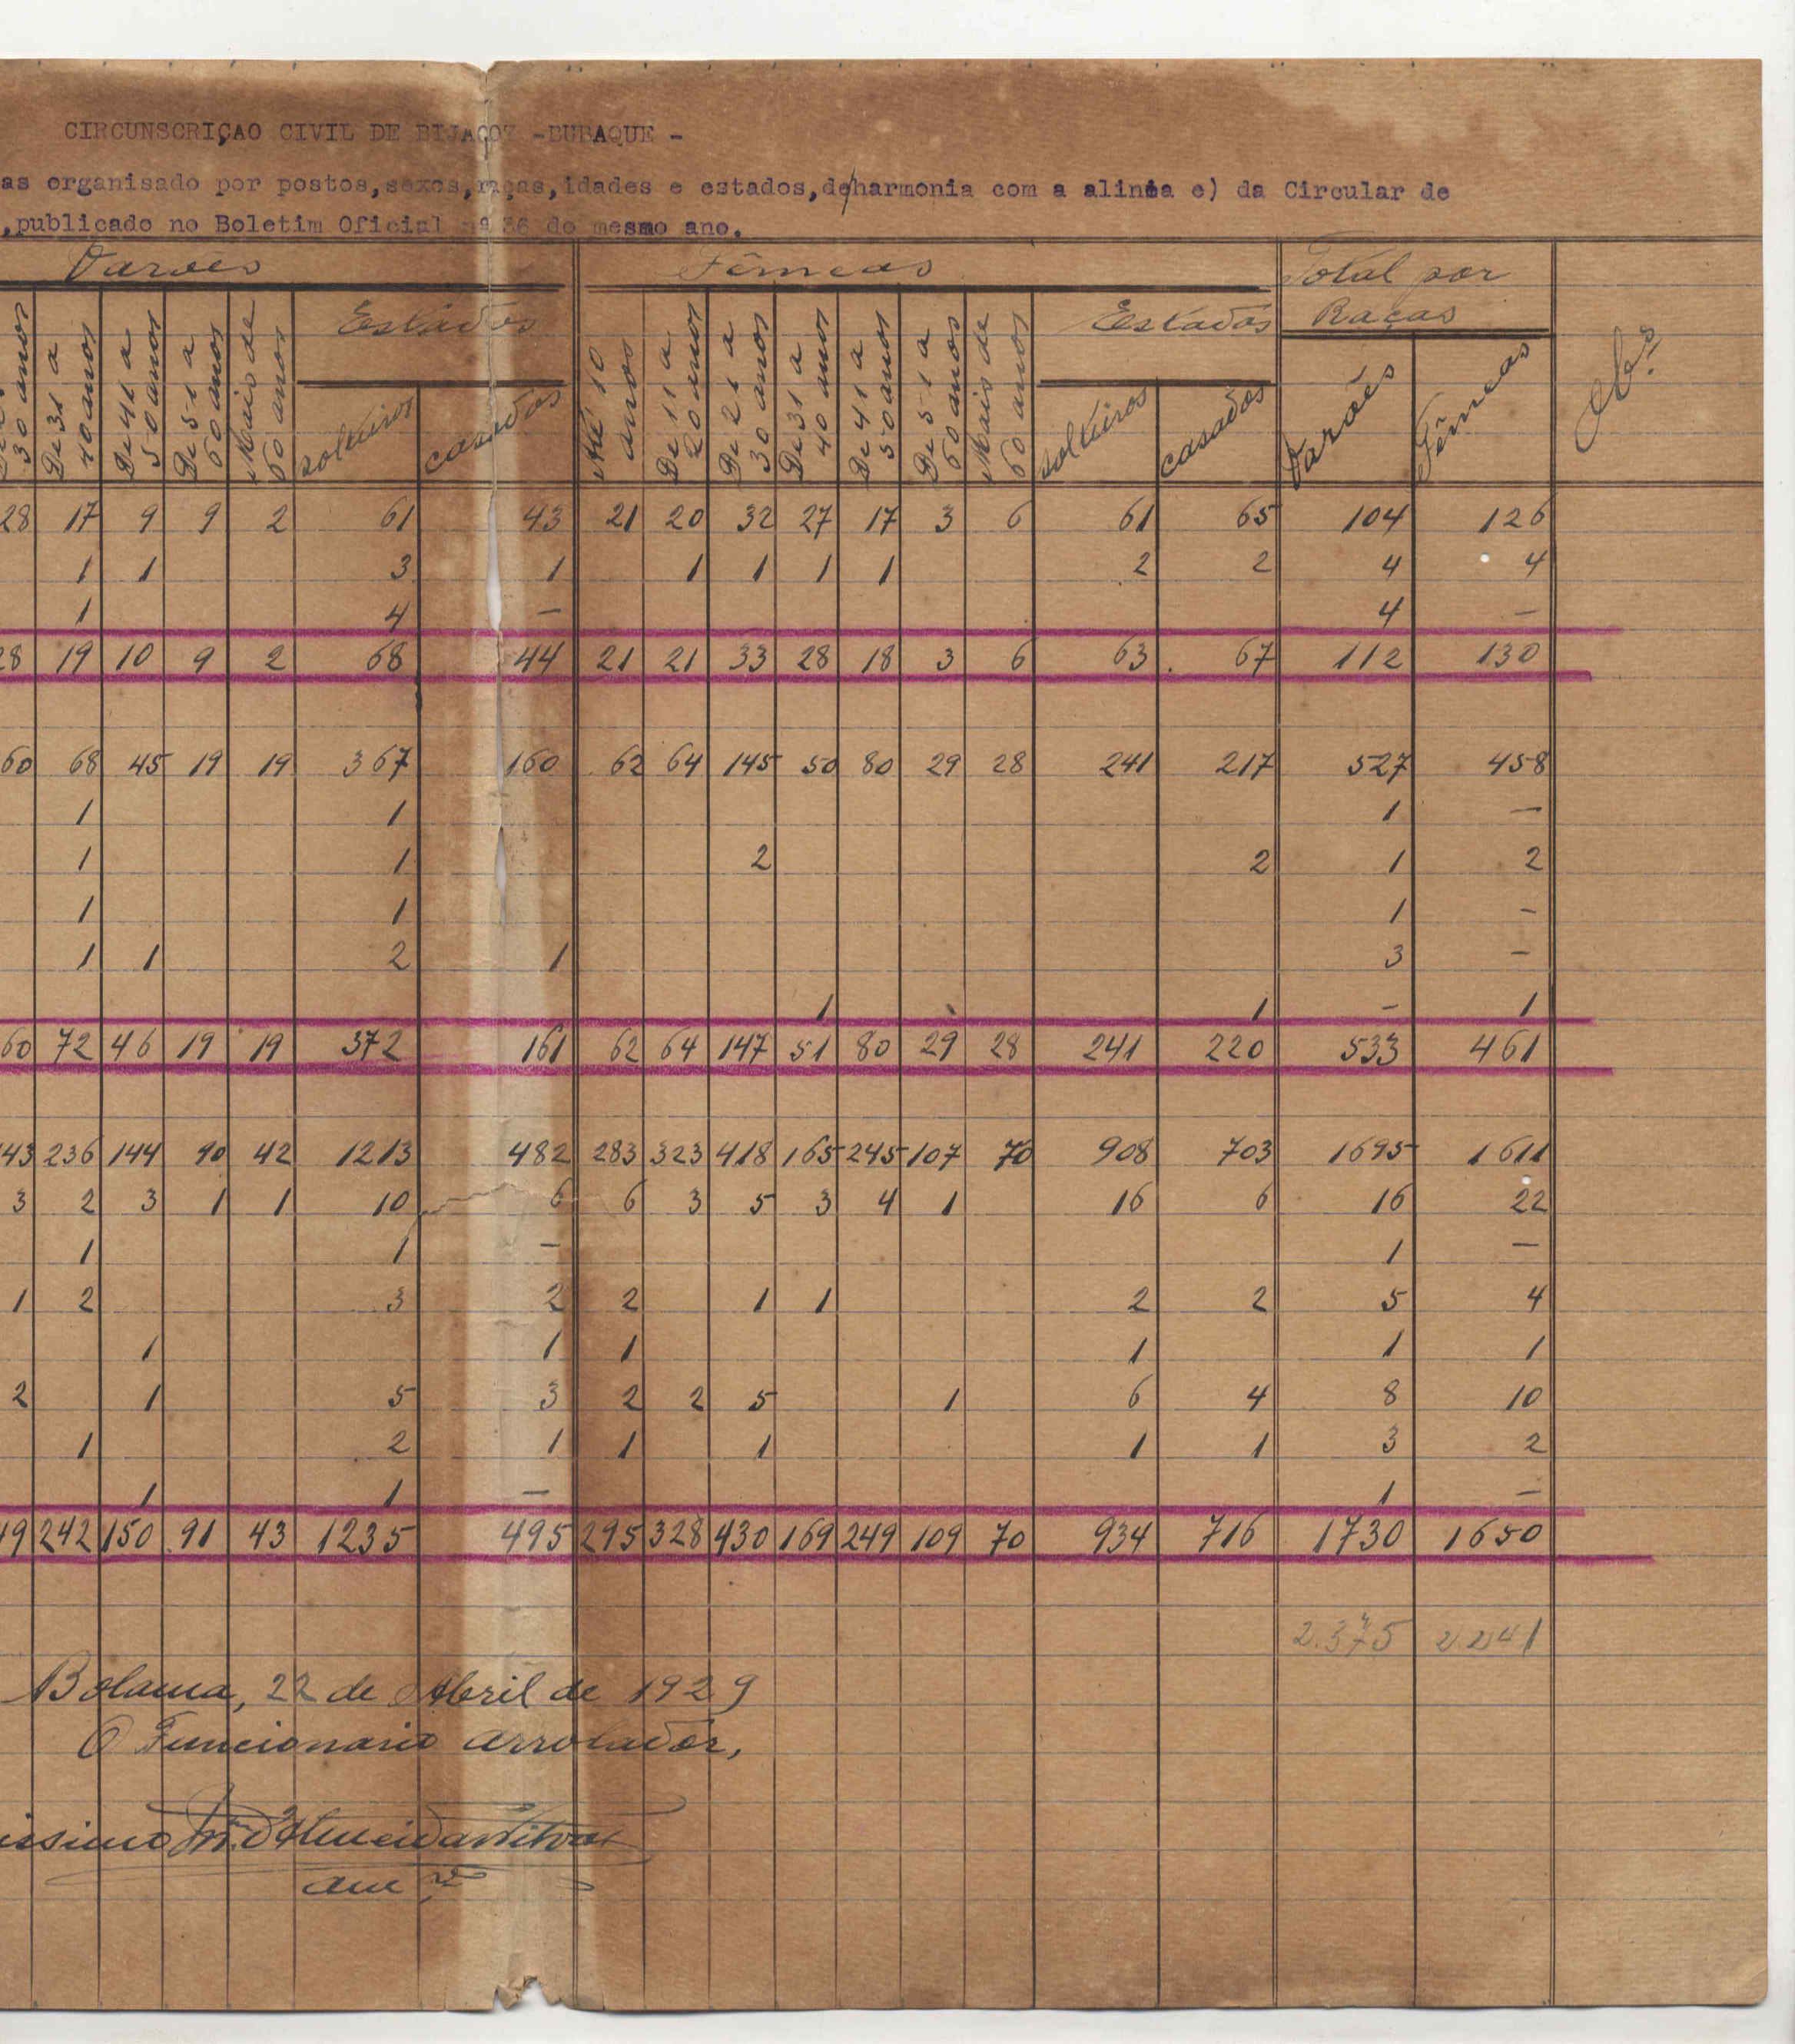 CIRCUNSCRIÇAO CIVIL DE BIJAGOZ -BUBAQUE -
as organisado por postos,sexos,raças,idades e estados,de/harmonia com a alinea e) da Circular de
,publicado no Boletim Oficial nº 36 do mesmo ano.
Varões Fêmeas Total por
Estados Estados Raças
30 anos De 31 a 40 anos De 41 a 50 anos De 51 a 60 anos Mais de 60 anos solteiros casados Até 10 anos De 11 a 20 anos De 21 a 30 anos De 31 a 40 anos De 41 a 50 anos De 51 a 60 anos Mais de 60 anos solteiros casados Varões Fêmeas Obs.
28 17 9 9 2 61 43 21 20 32 27 17 3 6 61 65 104 126
1 1 3 1 1 1 1 1 2 2 4 4
1 4 — 4 —
28 19 10 9 2 68 44 21 21 33 28 18 3 6 63 67 112 130
60 68 45 19 19 367 160 62 64 145 50 80 29 28 241 217 527 458
1 1 1 —
1 1 2 2 1 2
1 1 1 -
1 1 2 1 3 —
1 1 - 1
60 72 46 19 19 372 161 62 64 147 51 80 29 28 241 220 533 461
43 236 144 90 42 1213 482 283 323 418 165 245 107 70 908 703 1695 1611
3 2 3 1 1 10 6 6 3 5 3 4 1 16 6 16 22
1 1 — 1 —
1 2 3 2 2 1 1 2 2 5 4
1 1 1 1 1 1
2 1 5 3 2 2 5 1 6 4 8 10
1 2 1 1 1 1 1 3 2
1 1 — 1 —
49 242 150 91 43 1235 495 295 328 430 169 249 109 70 934 716 1730 1650
2.375 2.241
Bolama, 22 de Abril de 1929
O Funcionario arrolador,